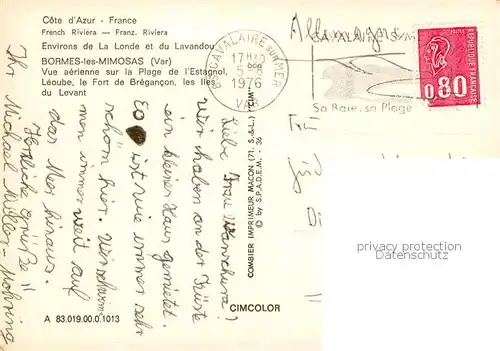 Côte d'Azur - France
French Riviera — Franz. Riviera
Environs de La Londe et du Lavandou
BORMES-les-MIMOSAS (Var)
Vue aérienne sur la Plage de l'Estagnol,
Léoube, le Fort de Brégançon, les Iles
du Levant
CAVALAIRE SUR MER
17H30
5-8
1976
VAR
Allemagne
Sa Baie, sa Plage
0,80
REPUBLIQUE FRANÇAISE
Liebe Frau
wir haben an der Küste
ein kleines Haus gemietet.
Es ist wie immer sehr
schön hier. Wir schwimmen
immer weit auf
das Meer hinaus.
Herzliche Grüße
Ihr Michael Müller-Möhring
COMBIER IMPRIMEUR MACON (71. S.-&-L.) "CIM"
© by S.P.A.D.E.M. - 36
CIMCOLOR
A 83.019.00.0.1013
privacy protection
Datenschutz